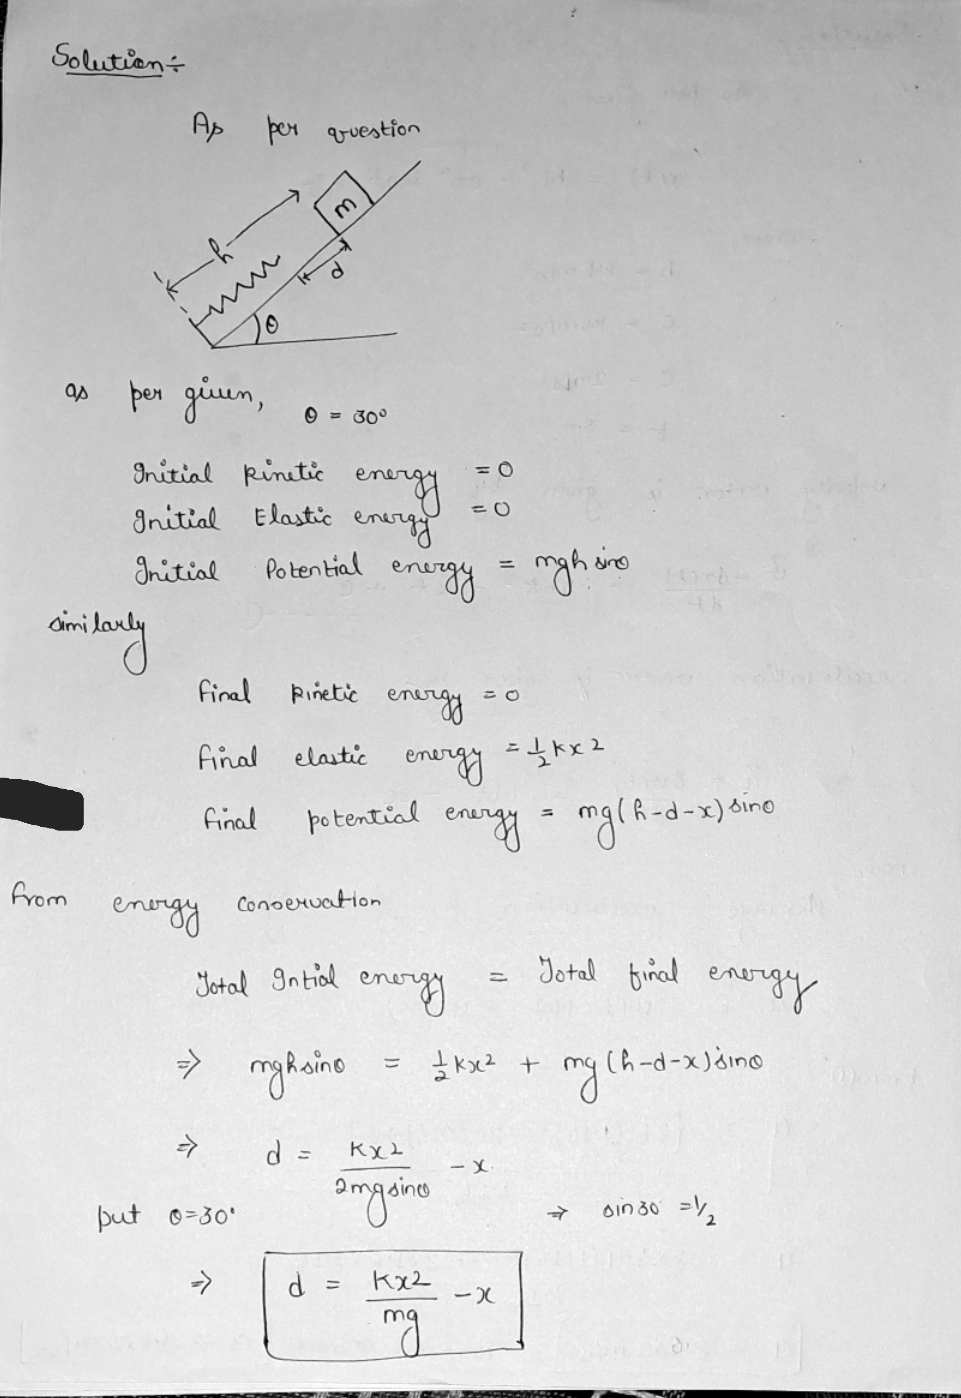 Solution÷
As per question
m
h
d
θ
as per given, θ = 30°
Initial kinetic energy = 0
Initial Elastic energy = 0
Initial Potential energy = mgh sinθ
similarly
final kinetic energy = 0
final elastic energy = 1/2 kx2
final potential energy = mg(h-d-x) sinθ
from energy conservation
Total Intial energy = Total final energy
⇒ mgh sinθ = 1/2 kx² + mg (h-d-x) sinθ
⇒ d = kx2 / 2mg sinθ - x.
put θ=30° ⇒ sin30 = 1/2
⇒ d = kx2 / mg - x